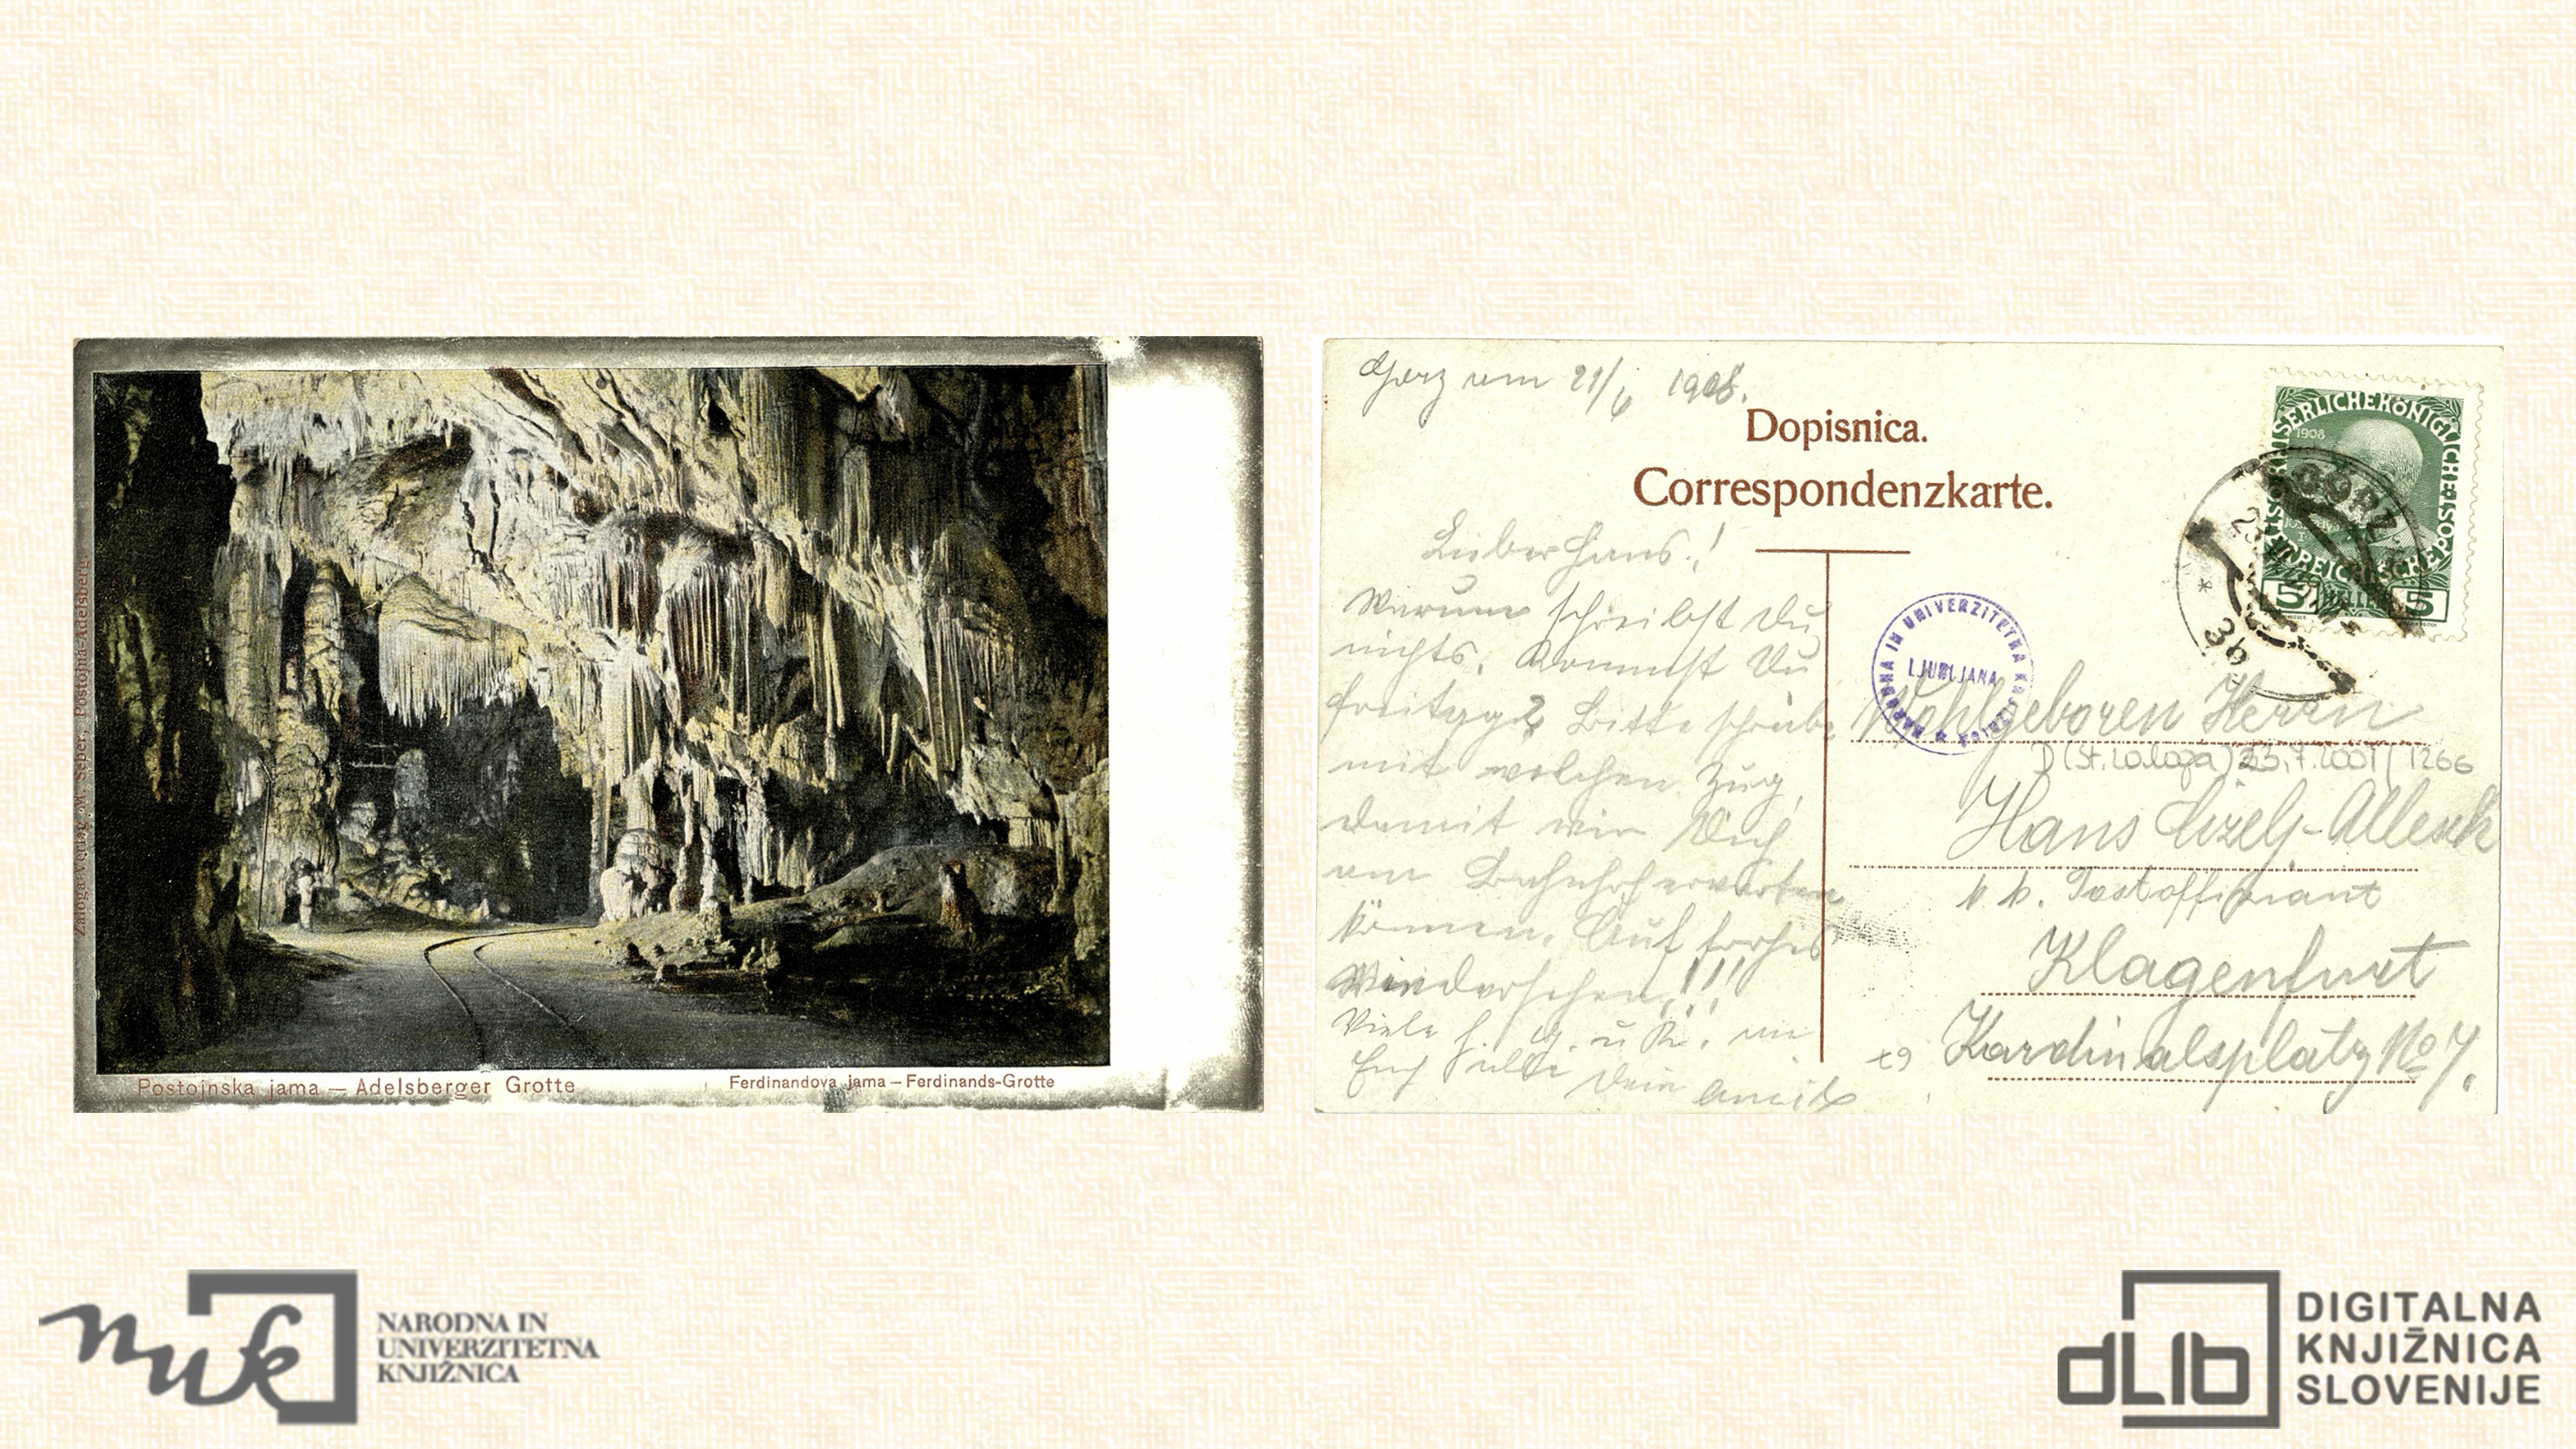 Postojnska jama — Adelsberger Grotte
Ferdinandova jama – Ferdinands-Grotte
Zaloga-Verlag M. Šeber, Postojna-Adelsberg.
Görz am 21/6 1908.
Dopisnica.
Correspondenzkarte.
Lieber Hans!
Warum schreibst Du
nichts. Kommst Du
Freitag? Bitte schreibe
mit welchen Zug,
damit wir Dich
am Bahnhof erwarten
können. Auf frohes
Wiedersehen!!!
Viele H. G. u. K. an
Euch alle Dein
1908
GÖRZ
3b
5 5
NARODNA IN UNIVERZITETNA KNJIŽNICA
LJUBLJANA
Wohlgeboren Herrn
23.7.2001/1266
Hans
k. k. Postoffiziant
Klagenfurt
Kardinalsplatz No 7.
nuk
NARODNA IN
UNIVERZITETNA
KNJIŽNICA
dLib
DIGITALNA
KNJIŽNICA
SLOVENIJE